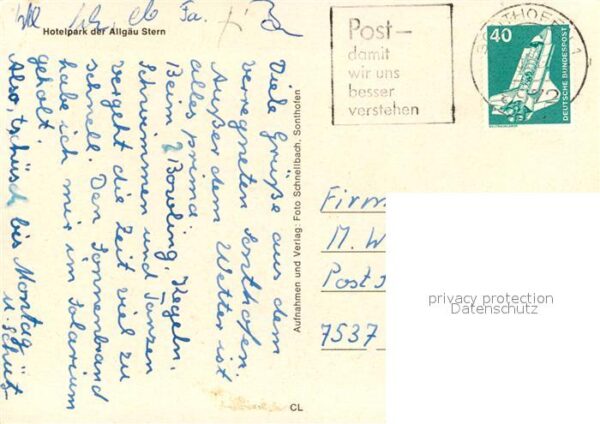 Hotelpark der Allgäu Stern
Fa.
Viele Grüße aus dem
verregneten Sonthofen.
Außer dem Wetter ist
alles prima
Beim Bowling, Kegeln,
Schwimmen und Tanzen
vergeht die Zeit viel zu
schnell. Den Sonnenbrand
habe ich mir im Solarium
geholt.
Also, tschüsch bis Montag
Aufnahmen und Verlag: Foto Schnellbach, Sonthofen
CL
Post–
damit
wir uns
besser
verstehen
SONTHOFEN 1
40
DEUTSCHE BUNDESPOST
Firm
M. W
Post
7537
privacy protection
Datenschutz